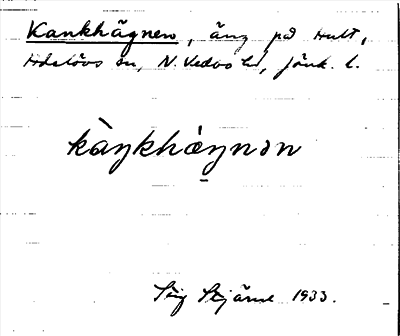 Kankhägnen, äng på Hult,
Hdslövs sn, N. Vedbo hd, Jönk. l.
kàŋkhæ̀ŋnən
Stig Stjärne 1933.